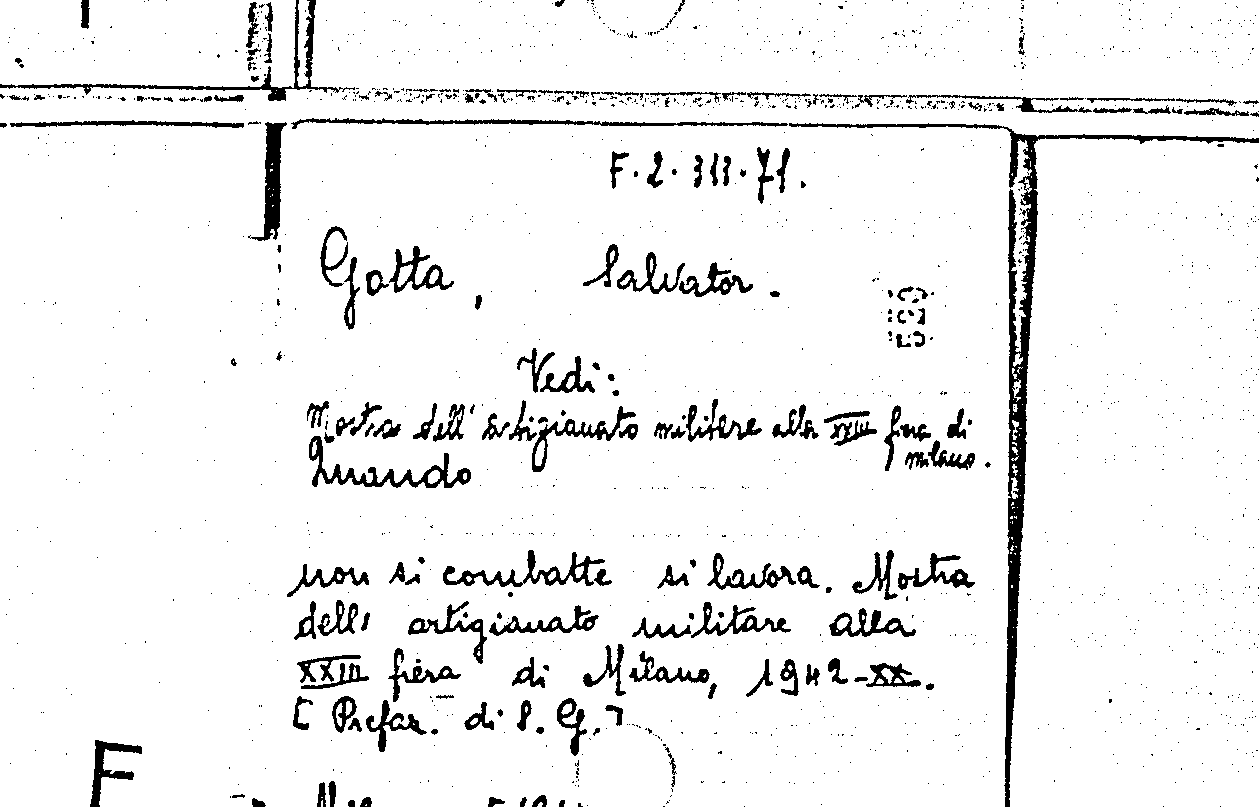 F.2.313.71.
Gotta, Salvator.
Vedi:
Mostra dell'artigianato militare alla XXIII fiera di
milano.
Quando
non si combatte si lavora. Mostra
dell'artigianato militare alla
XXIII fiera di Milano, 1942-XX.
[Prefaz. di S. G.]
F